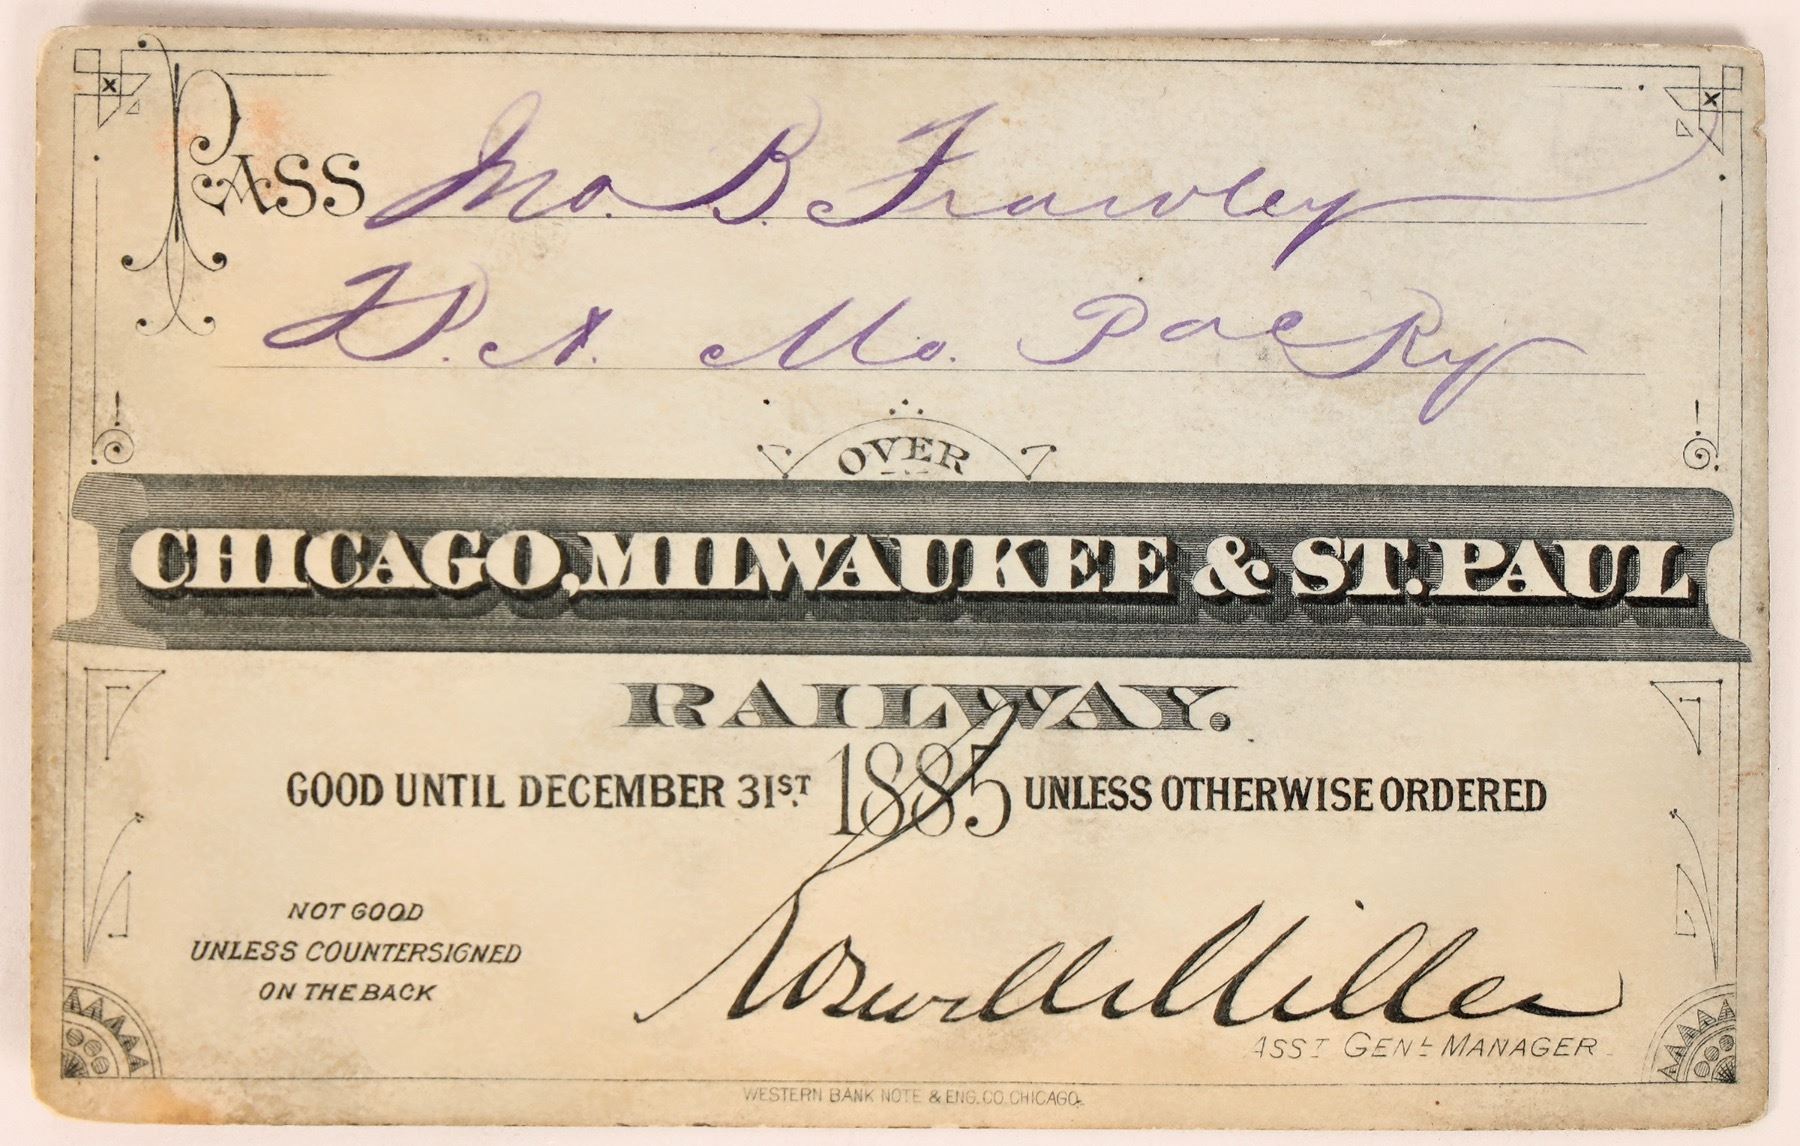 PASS Jno. B. Frawley
T.P.A. Mo. Pac Ry
OVER
CHICAGO, MILWAUKEE & ST. PAUL
RAILWAY.
GOOD UNTIL DECEMBER 31ST. 1885 UNLESS OTHERWISE ORDERED
NOT GOOD
UNLESS COUNTERSIGNED
ON THE BACK
Roswell Miller
ASST GENL MANAGER.
WESTERN BANK NOTE & ENG. CO. CHICAGO.